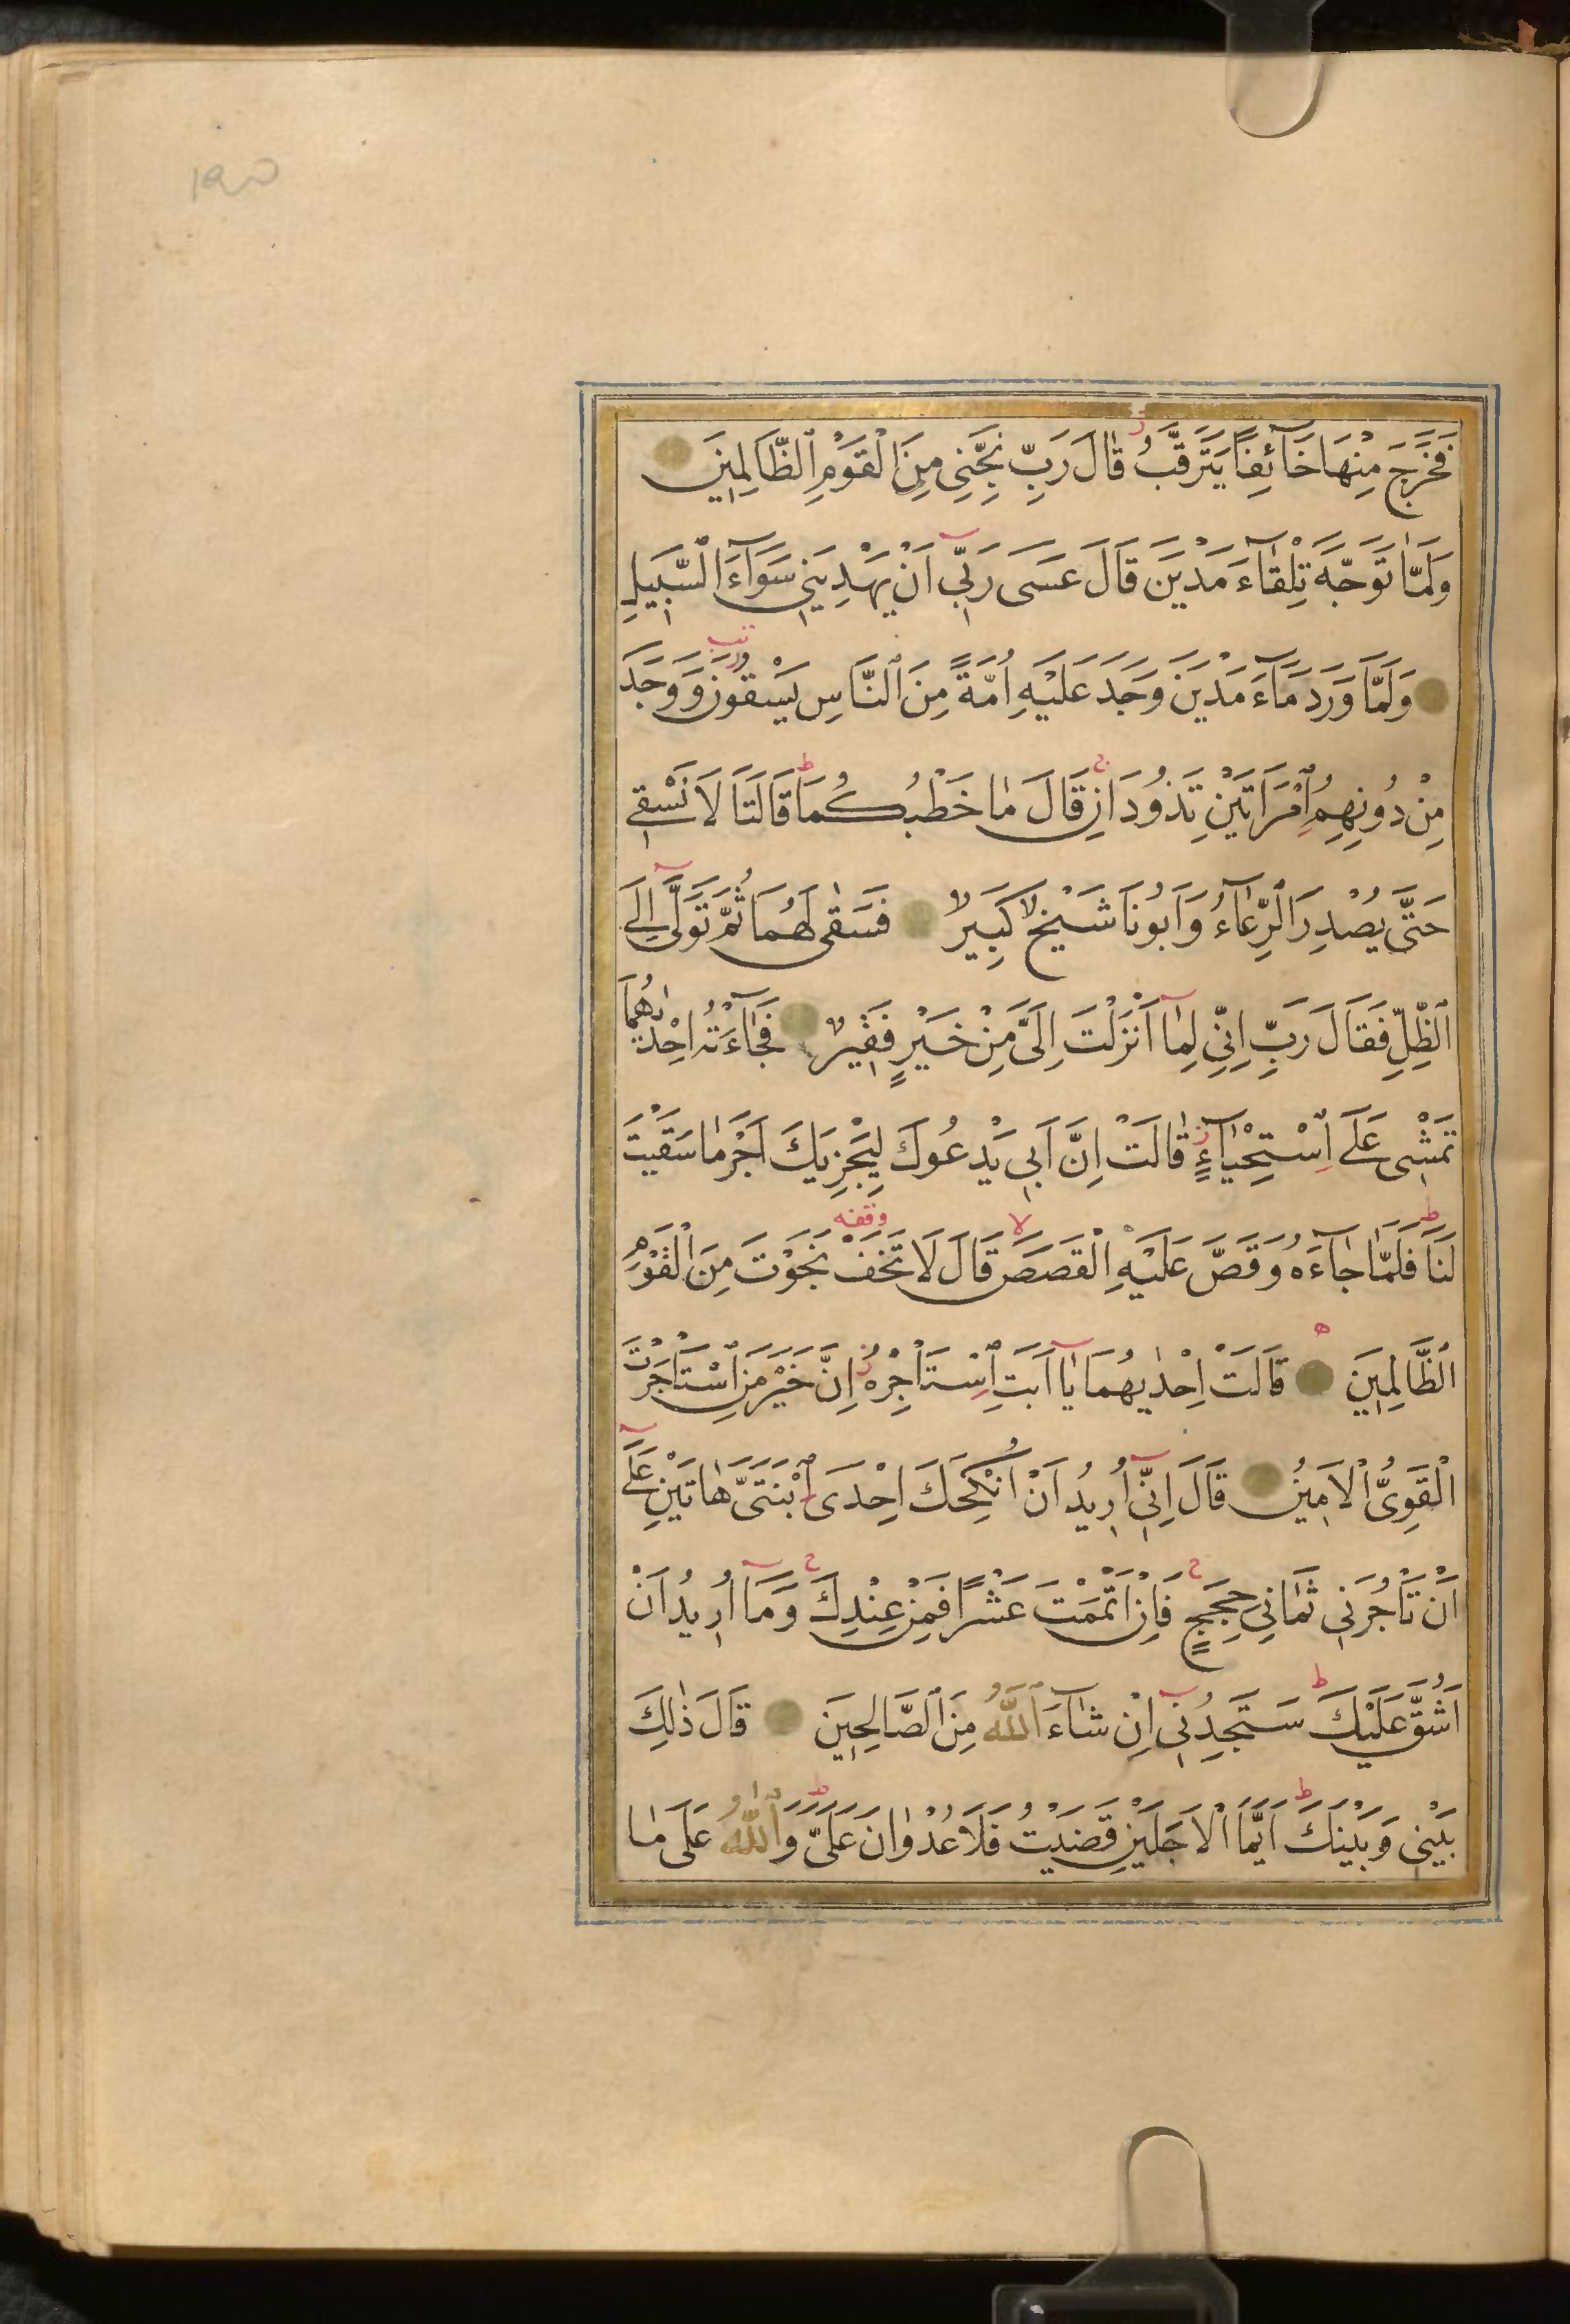 فَخَرَجَ مِنْهَا خَآئِفًا يَتَرَقَّبُ قَالَ رَبِّ نَجِّنِى مِنَ الْقَوْمِ الظَّالِمِينَ
وَلَمَّا تَوَجَّهَ تِلْقَآءَ مَدْيَنَ قَالَ عَسَى رَبِّى اَنْ يَهْدِيَنِى سَوَآءَ السَّبِيلِ
وَلَمَّا وَرَدَ مَآءَ مَدْيَنَ وَجَدَ عَلَيْهِ اُمَّةً مِنَ النَّاسِ يَسْقُونَ وَوَجَدَ
مِنْ دُونِهِمُ امْرَاَتَيْنِ تَذُودَانِ قَالَ مَا خَطْبُكُمَا قَالَتَا لَا نَسْقِى
حَتَّى يُصْدِرَ الرِّعَآءُ وَاَبُونَا شَيْخٌ كَبِيرٌ فَسَقٰى لَهُمَا ثُمَّ تَوَلَّى اِلَى
الظِّلِّ فَقَالَ رَبِّ اِنِّى لِمَا اَنْزَلْتَ اِلَىَّ مِنْ خَيْرٍ فَقِيرٌ فَجَآءَتْهُ اِحْدٰيهُمَا
تَمْشِى عَلَى اسْتِحْيَآءٍ قَالَتْ اِنَّ اَبِى يَدْعُوكَ لِيَجْزِيَكَ اَجْرَ مَا سَقَيْتَ
لَنَا فَلَمَّا جَآءَهُ وَقَصَّ عَلَيْهِ الْقَصَصَ قَالَ لَا تَخَفْ نَجَوْتَ مِنَ الْقَوْمِ
الظَّالِمِينَ قَالَتْ اِحْدٰيهُمَا يَا اَبَتِ اسْتَاْجِرْهُ اِنَّ خَيْرَ مَنِ اسْتَاْجَرْتَ
الْقَوِىُّ الْاَمِينُ قَالَ اِنِّى اُرِيدُ اَنْ اُنْكِحَكَ اِحْدَى ابْنَتَىَّ هَاتَيْنِ عَلَى
اَنْ تَاْجُرَنِى ثَمَانِىَ حِجَجٍ فَاِنْ اَتْمَمْتَ عَشْرًا فَمِنْ عِنْدِكَ وَمَا اُرِيدُ اَنْ
اَشُقَّ عَلَيْكَ سَتَجِدُنِى اِنْ شَآءَ اللّٰهُ مِنَ الصَّالِحِينَ قَالَ ذٰلِكَ
بَيْنِى وَبَيْنَكَ اَيَّمَا الْاَجَلَيْنِ قَضَيْتُ فَلَا عُدْوَانَ عَلَىَّ وَاللّٰهُ عَلَى مَا